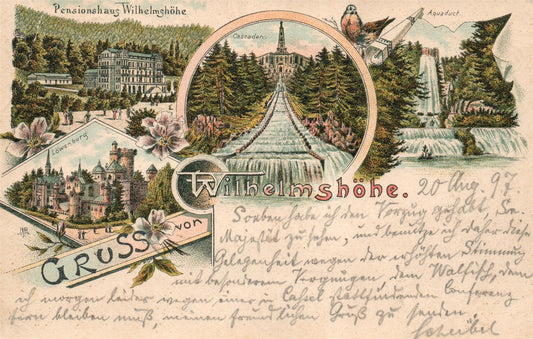 Pensionshaus Wilhelmshöhe
Cascaden
Aquaduct.
Löwenburg
GRUSS von
Wilhelmshöhe.
20 Aug. 97
Soeben habe ich den Vorzug gehabt, Se.
Majestät zu sehen, und benütze ich daher diese
Gelegenheit wegen der erhöhten Stimmung
mit besonderem Vergnügen dem Walfisch, dem
ich morgen leider wegen einer in Cassel stattfindenden Conferenz
fern bleiben muß, meinen freundlichen Gruß zu senden.
Scheibel